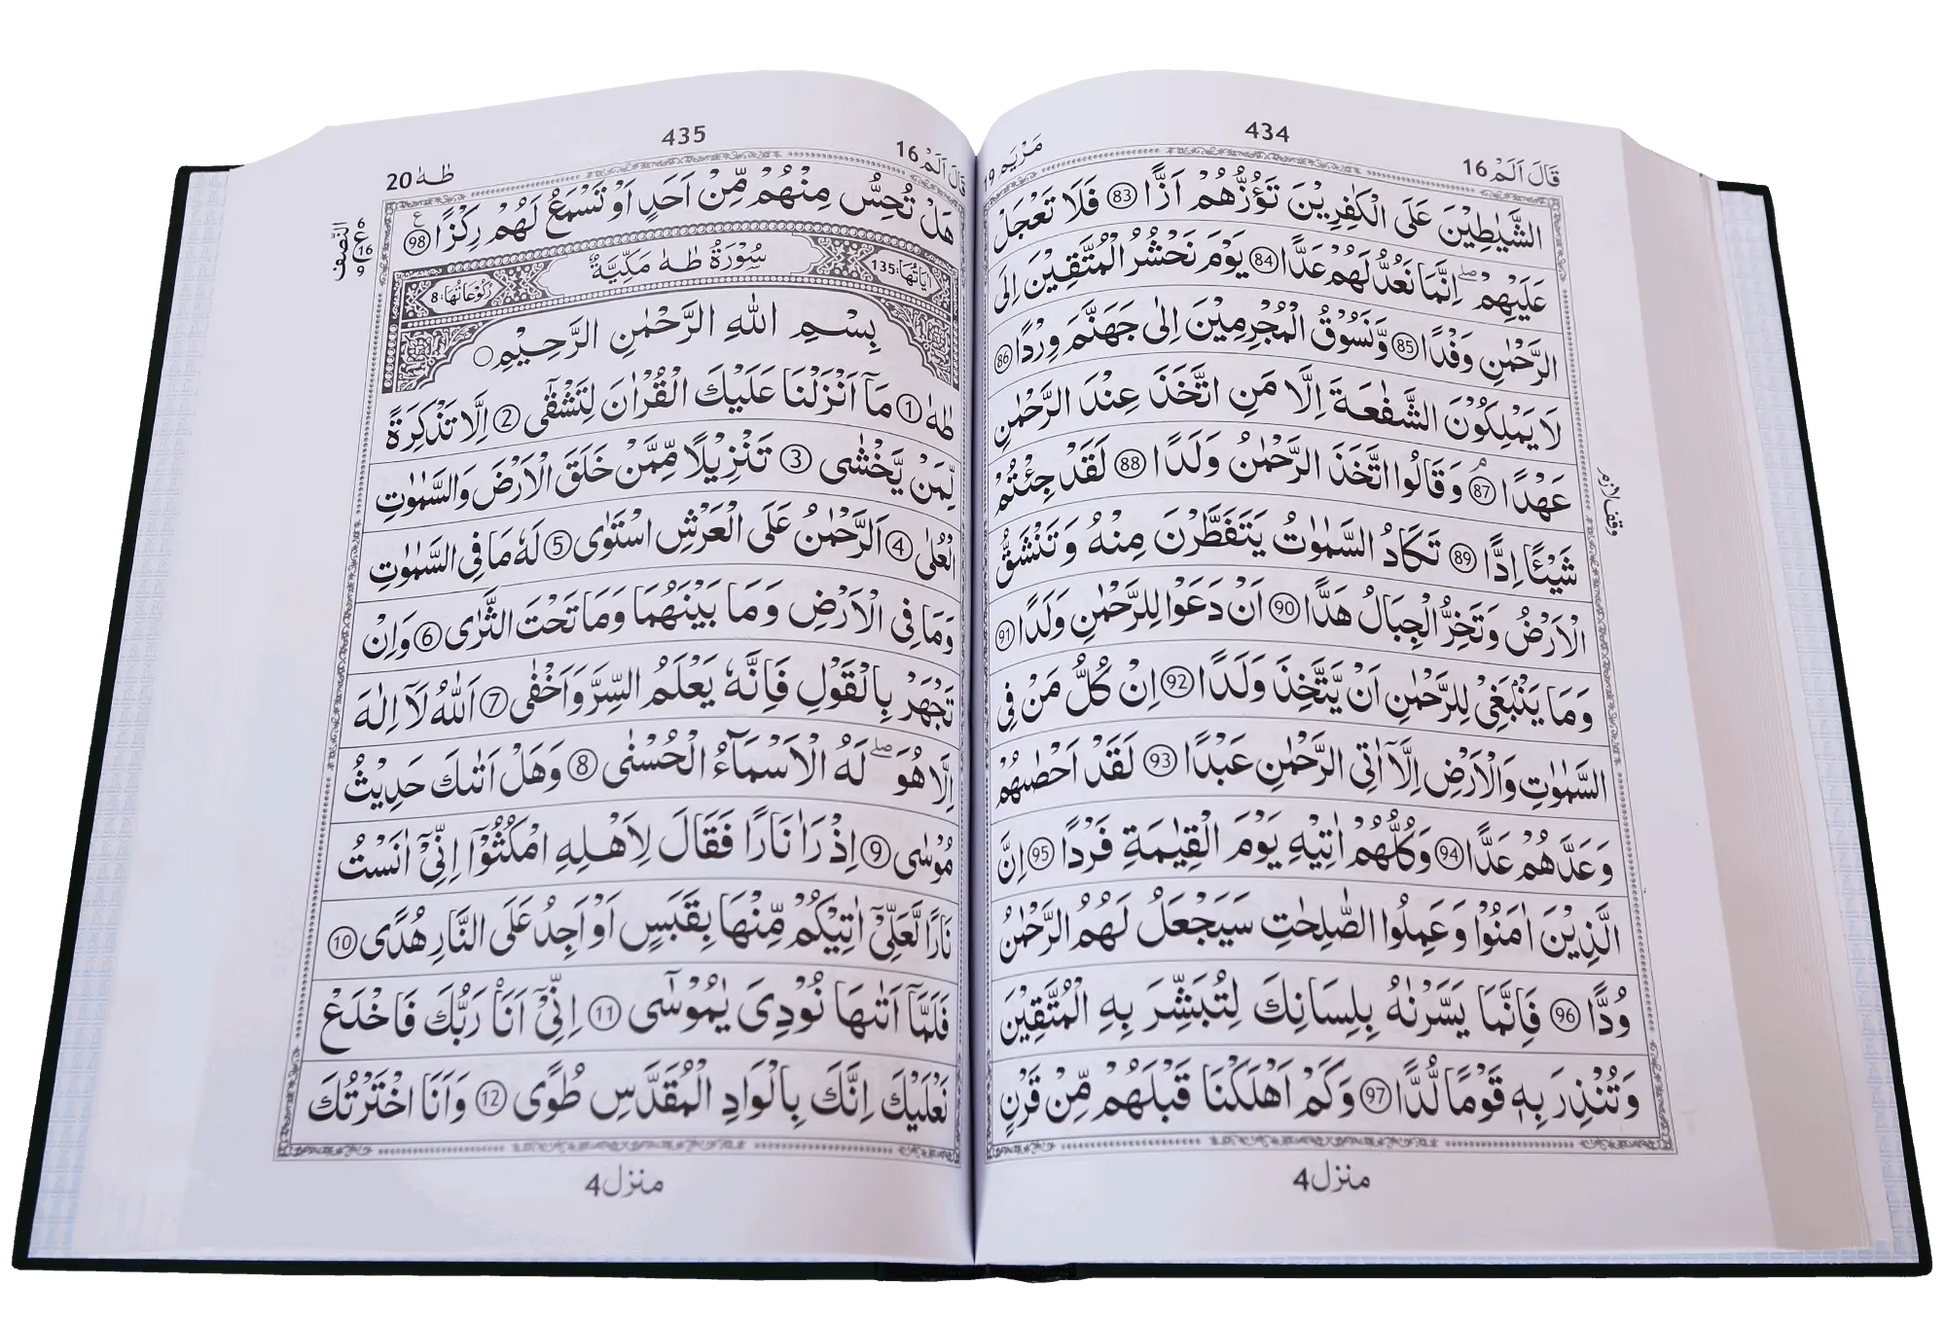 434
قَالَ اَلَمْ 16
مَرْيَم 19
الشَّيٰطِيْنَ عَلَى الْكٰفِرِيْنَ تَؤُزُّهُمْ اَزًّا 83 فَلَا تَعْجَلْ
عَلَيْهِمْ ۖ اِنَّمَا نَعُدُّ لَهُمْ عَدًّا 84 يَوْمَ نَحْشُرُ الْمُتَّقِيْنَ اِلَى
الرَّحْمٰنِ وَفْدًا 85 وَّنَسُوْقُ الْمُجْرِمِيْنَ اِلٰى جَهَنَّمَ وِرْدًا 86
لَا يَمْلِكُوْنَ الشَّفٰعَةَ اِلَّا مَنِ اتَّخَذَ عِنْدَ الرَّحْمٰنِ
عَهْدًا 87 ۘ وَقَالُوا اتَّخَذَ الرَّحْمٰنُ وَلَدًا 88 لَقَدْ جِئْتُمْ
وقف لازم
شَيْئًا اِدًّا 89 تَكَادُ السَّمٰوٰتُ يَتَفَطَّرْنَ مِنْهُ وَتَنْشَقُّ
الْاَرْضُ وَتَخِرُّ الْجِبَالُ هَدًّا 90 اَنْ دَعَوْا لِلرَّحْمٰنِ وَلَدًا 91
وَمَا يَنْۢبَغِيْ لِلرَّحْمٰنِ اَنْ يَّتَّخِذَ وَلَدًا 92 اِنْ كُلُّ مَنْ فِى
السَّمٰوٰتِ وَالْاَرْضِ اِلَّآ اٰتِى الرَّحْمٰنِ عَبْدًا 93 لَقَدْ اَحْصٰىهُمْ
وَعَدَّهُمْ عَدًّا 94 وَكُلُّهُمْ اٰتِيْهِ يَوْمَ الْقِيٰمَةِ فَرْدًا 95 اِنَّ
الَّذِيْنَ اٰمَنُوْا وَعَمِلُوا الصّٰلِحٰتِ سَيَجْعَلُ لَهُمُ الرَّحْمٰنُ
وُدًّا 96 فَاِنَّمَا يَسَّرْنٰهُ بِلِسَانِكَ لِتُبَشِّرَ بِهِ الْمُتَّقِيْنَ
وَتُنْذِرَ بِهٖ قَوْمًا لُّدًّا 97 وَكَمْ اَهْلَكْنَا قَبْلَهُمْ مِّنْ قَرْنٍ
منزل 4
435
قَالَ اَلَمْ 16
طٰهٰ 20
هَلْ تُحِسُّ مِنْهُمْ مِّنْ اَحَدٍ اَوْ تَسْمَعُ لَهُمْ رِكْزًا 98 ع
النصف
ع 6 16 9
اٰيَاتُهَا:135
سُوْرَةُ طٰهٰ مَكِّيَّةٌ
رُكُوْعَاتُهَا:8
بِسْمِ اللّٰهِ الرَّحْمٰنِ الرَّحِيْمِ
طٰهٰ 1 مَآ اَنْزَلْنَا عَلَيْكَ الْقُرْاٰنَ لِتَشْقٰٓى 2 اِلَّا تَذْكِرَةً
لِّمَنْ يَّخْشٰى 3 تَنْزِيْلًا مِّمَّنْ خَلَقَ الْاَرْضَ وَالسَّمٰوٰتِ
الْعُلٰى 4 اَلرَّحْمٰنُ عَلَى الْعَرْشِ اسْتَوٰى 5 لَهٗ مَا فِى السَّمٰوٰتِ
وَمَا فِى الْاَرْضِ وَمَا بَيْنَهُمَا وَمَا تَحْتَ الثَّرٰى 6 وَاِنْ
تَجْهَرْ بِالْقَوْلِ فَاِنَّهٗ يَعْلَمُ السِّرَّ وَاَخْفٰى 7 اَللّٰهُ لَآ اِلٰهَ
اِلَّا هُوَ ۖ لَهُ الْاَسْمَآءُ الْحُسْنٰى 8 وَهَلْ اَتٰىكَ حَدِيْثُ
مُوْسٰى 9 اِذْ رَاٰ نَارًا فَقَالَ لِاَهْلِهِ امْكُثُوْٓا اِنِّيْٓ اٰنَسْتُ
نَارًا لَّعَلِّيْٓ اٰتِيْكُمْ مِّنْهَا بِقَبَسٍ اَوْ اَجِدُ عَلَى النَّارِ هُدًى 10
فَلَمَّآ اَتٰىهَا نُوْدِىَ يٰمُوْسٰٓى 11 اِنِّيْٓ اَنَا۠ رَبُّكَ فَاخْلَعْ
نَعْلَيْكَ اِنَّكَ بِالْوَادِ الْمُقَدَّسِ طُوًى 12 وَاَنَا اخْتَرْتُكَ
منزل 4